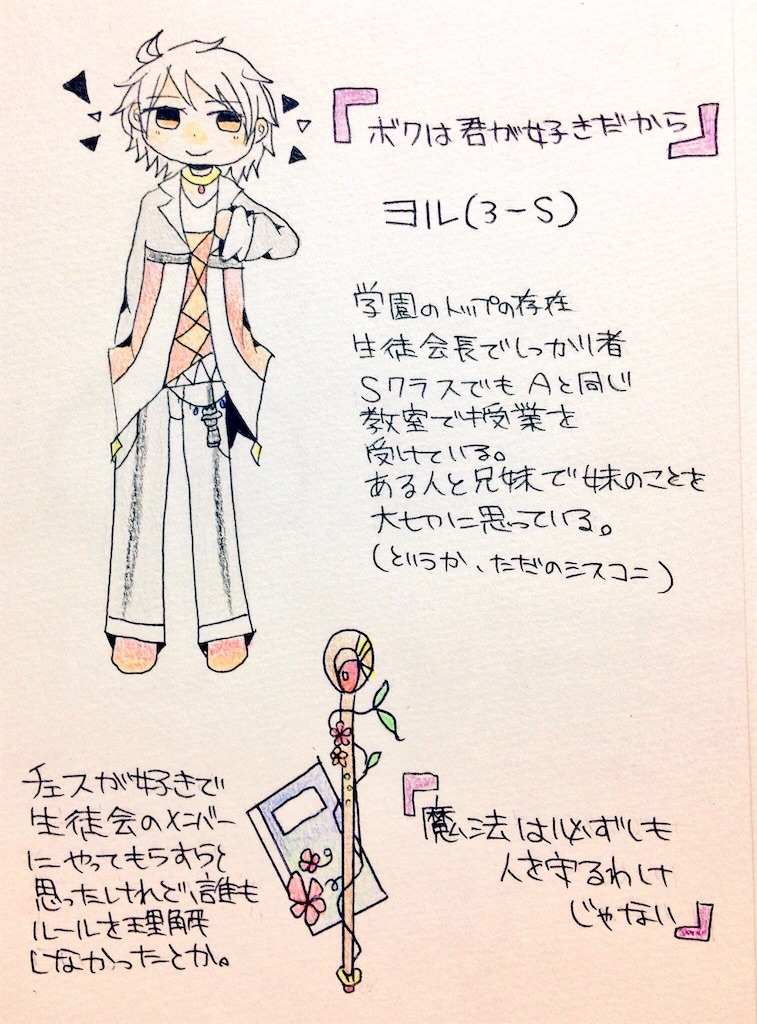 『ボクは君が好きだから』
ヨル(3-S)
学園のトップの存在
生徒会長でしっかり者
SクラスでもAと同じ
教室で授業を
受けている。
ある人と兄妹で妹のことを
大切に思っている。
(というか、ただのシスコン)
チェスが好きで
生徒会のメンバー
にやってもらうと
思ったけれど、誰も
ルールを理解
しなかったとか。
『魔法は必ずしも
人を守るわけ
じゃない』